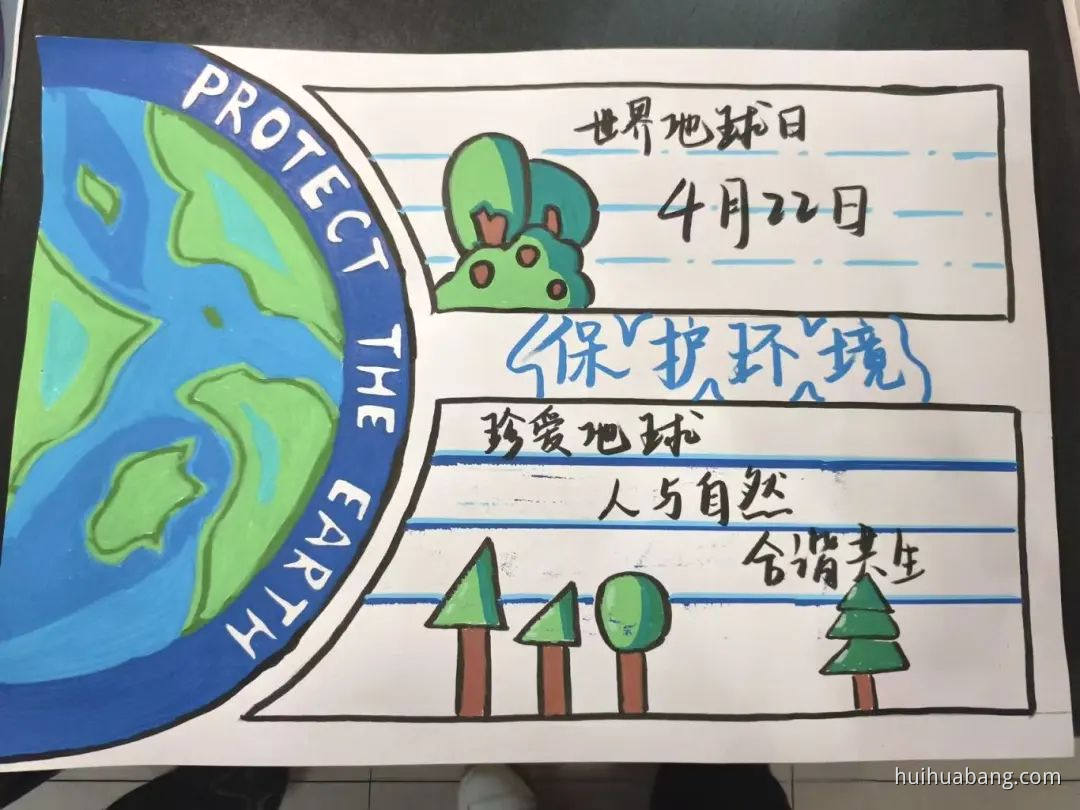 PROTECT THE EARTH
世界地球日
4月22日
保护环境
珍爱地球
人与自然
合谐共生
huihuabang.com